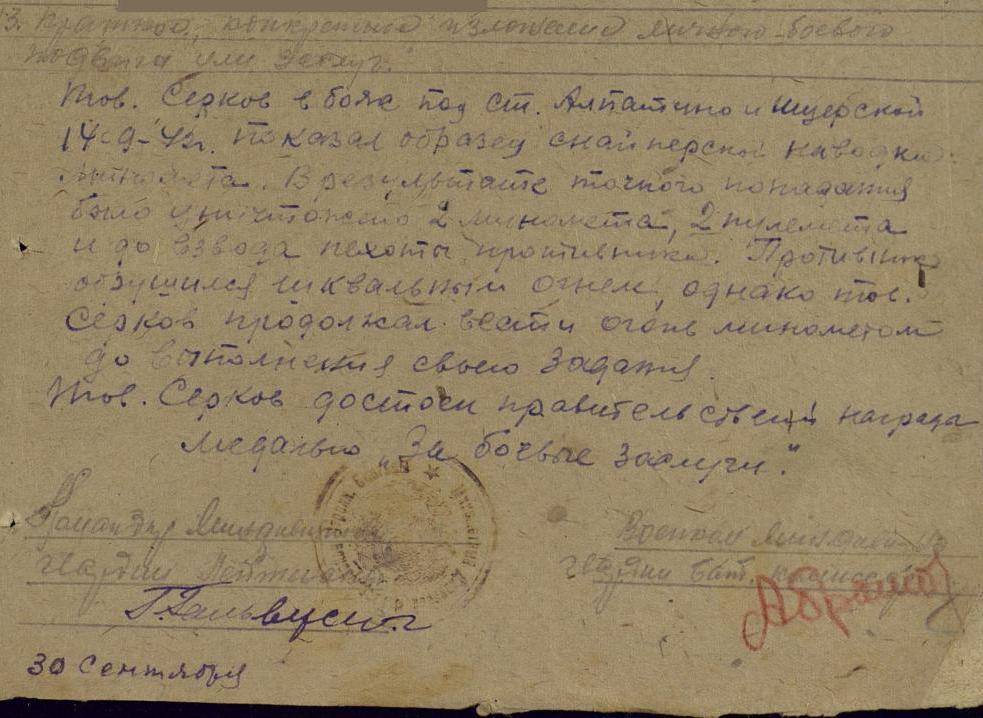 3. Краткое, конкретное изложение личного боевого
подвига или заслуг.
Тов. Серков в боях под ст. Алпатино и Ищерской
14-9-42г. показал образец снайперской наводки
миномета. В результате точного попадания
было уничтожено 2 миномета, 2 пулемета
и до взвода пехоты противника. Противник
обрушился шквальным огнем, однако тов.
Серков продолжал вести огонь минометом
до выполнения своего задания.
Тов. Серков достоен правительственной награды
медалью „За боевые заслуги."
Командир Минднвизиона
Гвардии
Военком
Гвардии бат. комиссар
Абрамов
30 Сентября